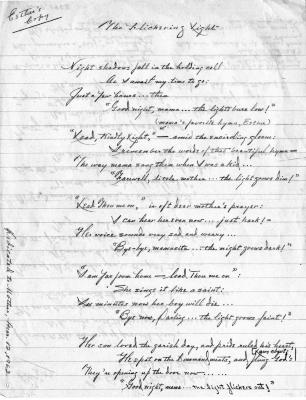 Esther's
Copy
The Flickering Light
Night shadows fall in the holding cell
As I await my time to go:
Just a few hours... then
"Good night, mama... the lights burn low!"
(mama's favorite hymn,
"Lead, Kindly Light," — amid the encircling gloom:
I remember the words of that beautiful hymn —
The way mama sang them when I was a kid...
"Farewell, little mother... the light grows dim!"
"Lead Thou me on," is of a dear mother's prayer:
I can hear her even now... just hark! —
Her voice sounds very sad, and weary...
"Bye-bye, mamacita... the night grows dark!"
"I am far from home — lead Thou me on":
She sings it like a saint:
Six minutes now her boy will die...
"Bye now, darling... the light grows faint!"
Her son loved the garish day, and pride ruled his heart,
He spit on the Commandments, and flung
They're opening up the door now — ......
"Good night, mama... the light flickers out!"
Dedicated to Mother, May 12, 1962